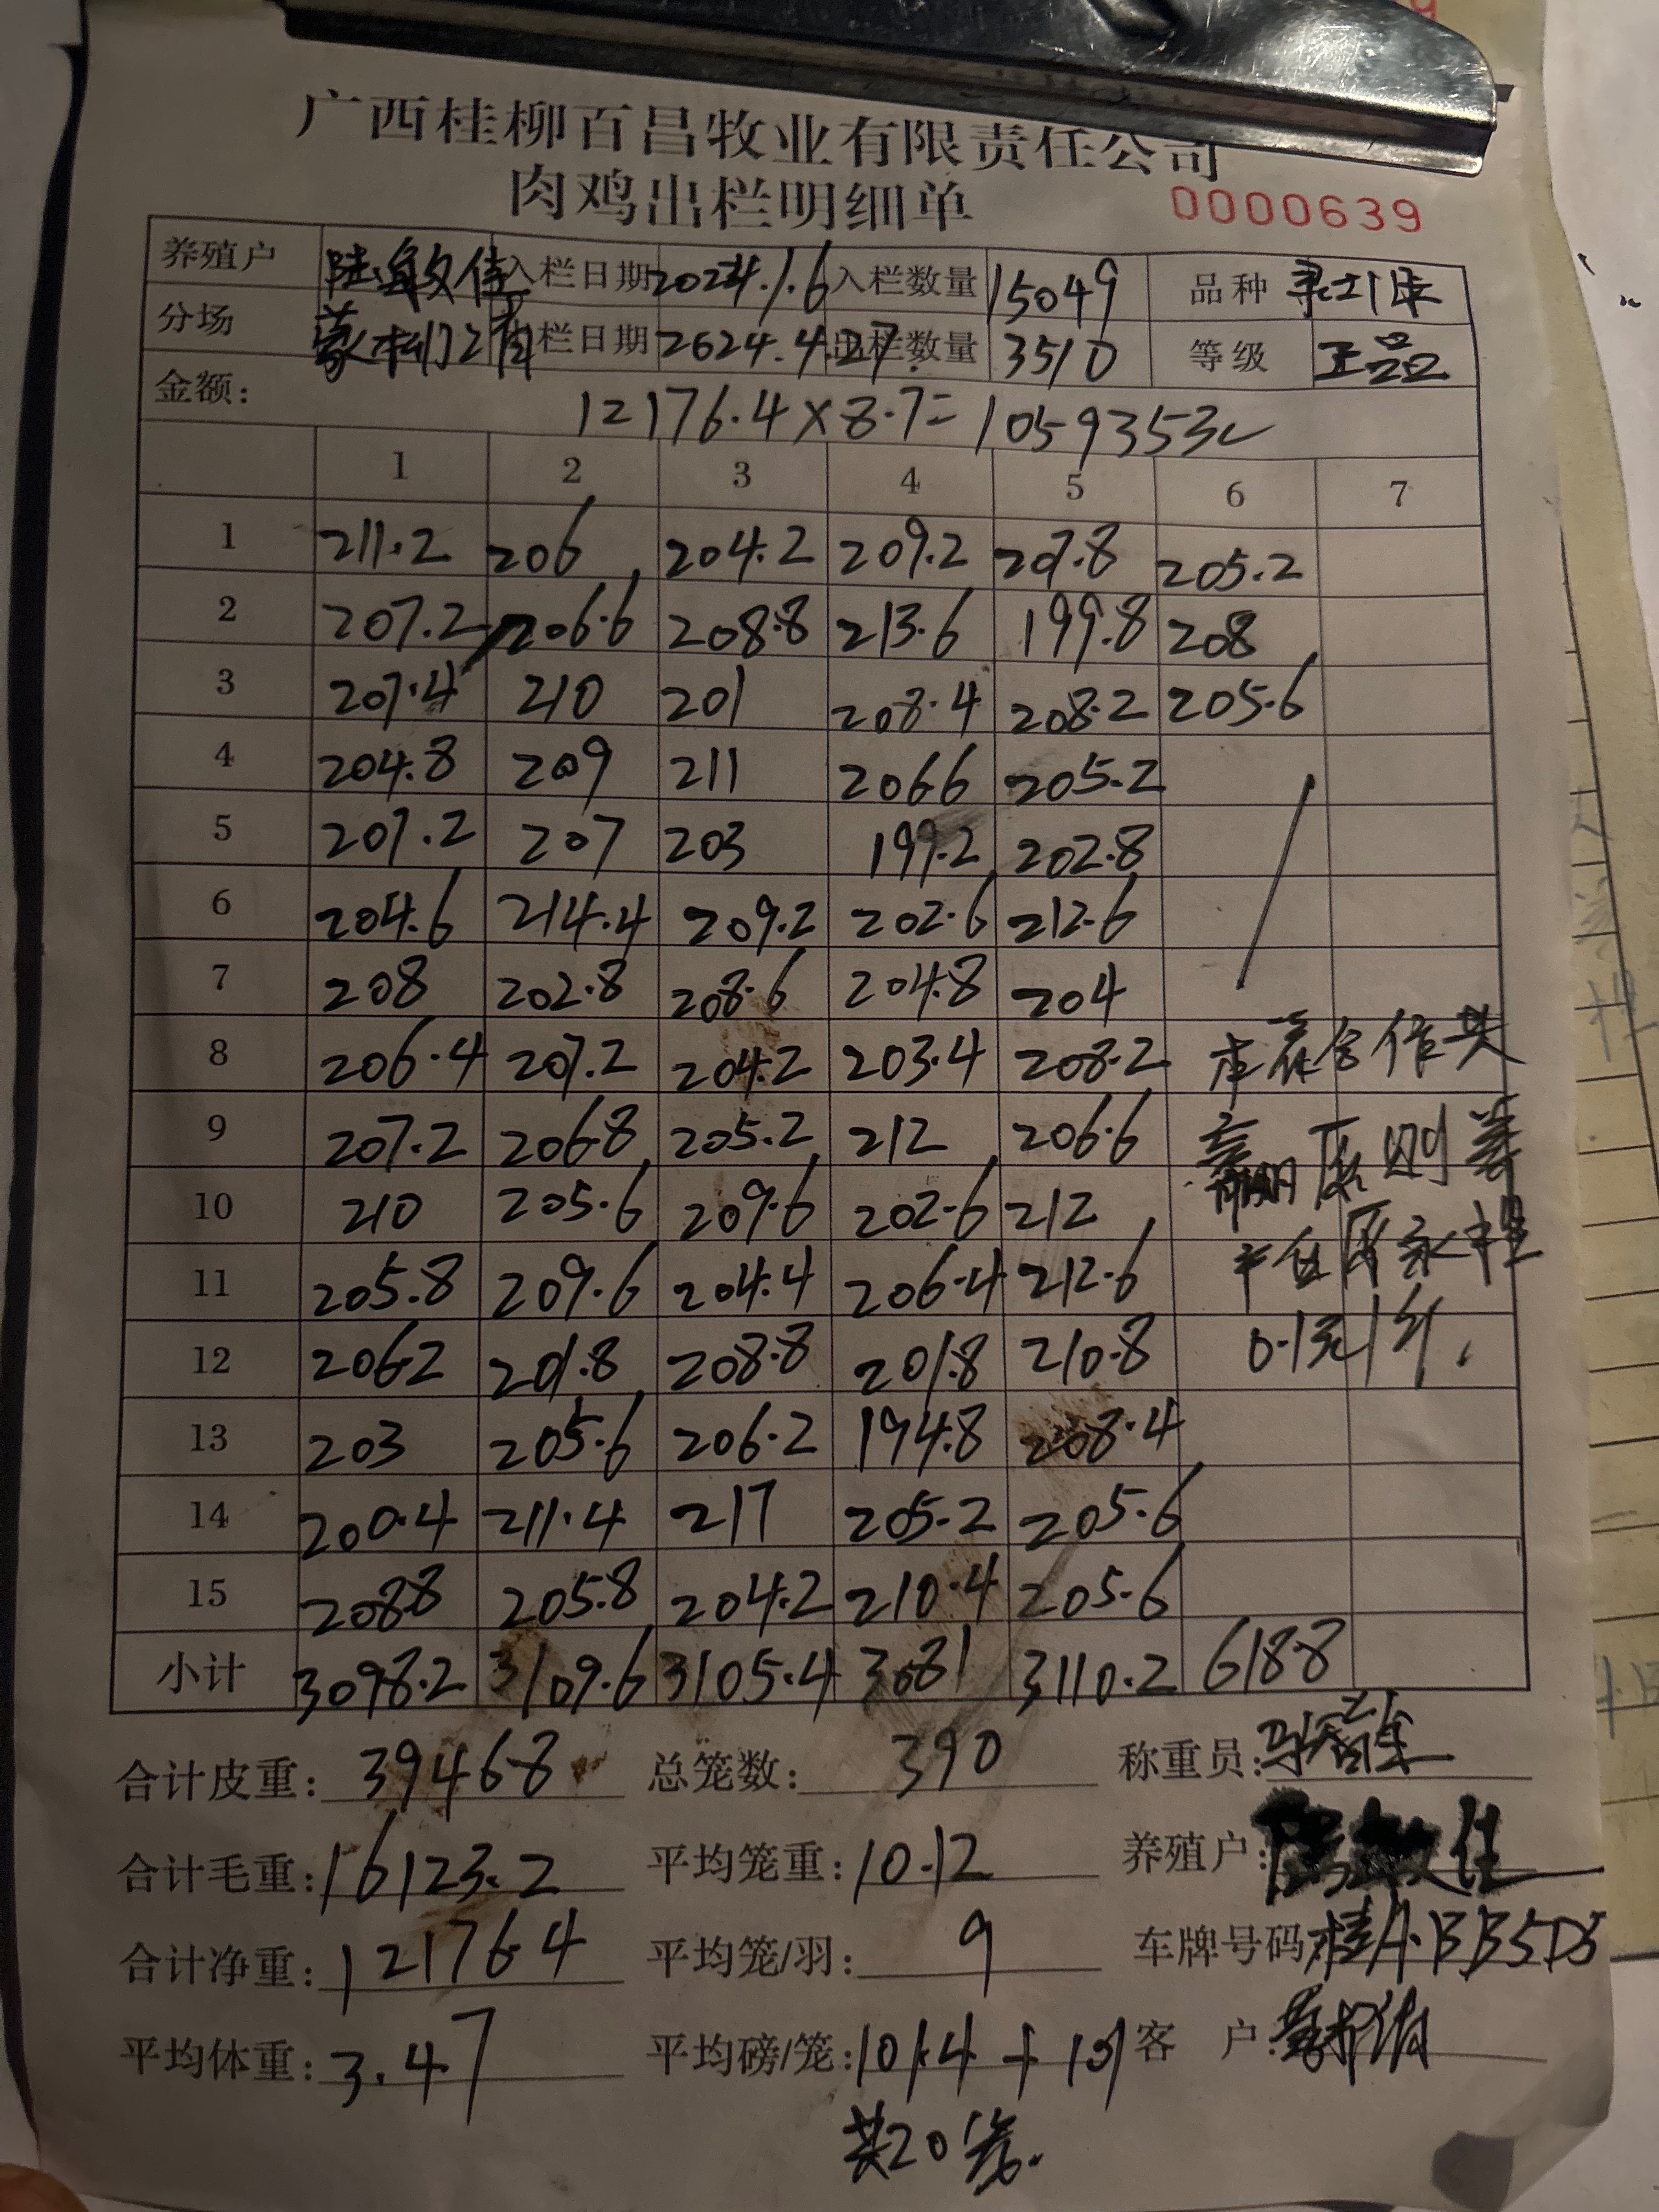 广西桂柳百昌牧业有限责任公司
肉鸡出栏明细单 0000639
养殖户 陆敏佳 入栏日期 2024.1.6 入栏数量 15049 品种
分场 栏日期 2024.4.27 出栏数量 3510 等级 正品
金额: 12176.4×8.7=105935元
1 2 3 4 5 6 7
1 211.2 206 204.2 209.2 207.8 205.2
2 207.2 206.6 208.8 213.6 199.8 208
3 207.4 210 201 208.4 208.2 205.6
4 204.8 209 211 206.6 205.2
5 207.2 207 203 199.2 202.8
6 204.6 214.4 209.2 202.6 212.6
7 208 202.8 208.6 204.8 204
8 206.4 207.2 204.2 203.4 208.2 本着合作共
9 207.2 206.8 205.2 212 206.6 赢原则
10 210 205.6 209.6 202.6 212
11 205.8 209.6 204.4 206.4 212.6
12 206.2 201.8 208.8 201.8 210.8 0.1元/斤.
13 203 205.6 206.2 194.8 208.4
14 200.4 211.4 217 205.2 205.6
15 208.8 205.8 204.2 210.4 205.6
小计 3098.2 3109.6 3105.4 3081 3110.2 618.8
合计皮重: 3946.8 总笼数: 390 称重员:
合计毛重: 16123.2 平均笼重: 10.12 养殖户: 陆敏佳
合计净重: 12176.4 平均笼/羽: 9 车牌号码 桂A·BB5D8
平均体重: 3.47 平均磅/笼: 101.4+101 客 户:
共20笼.